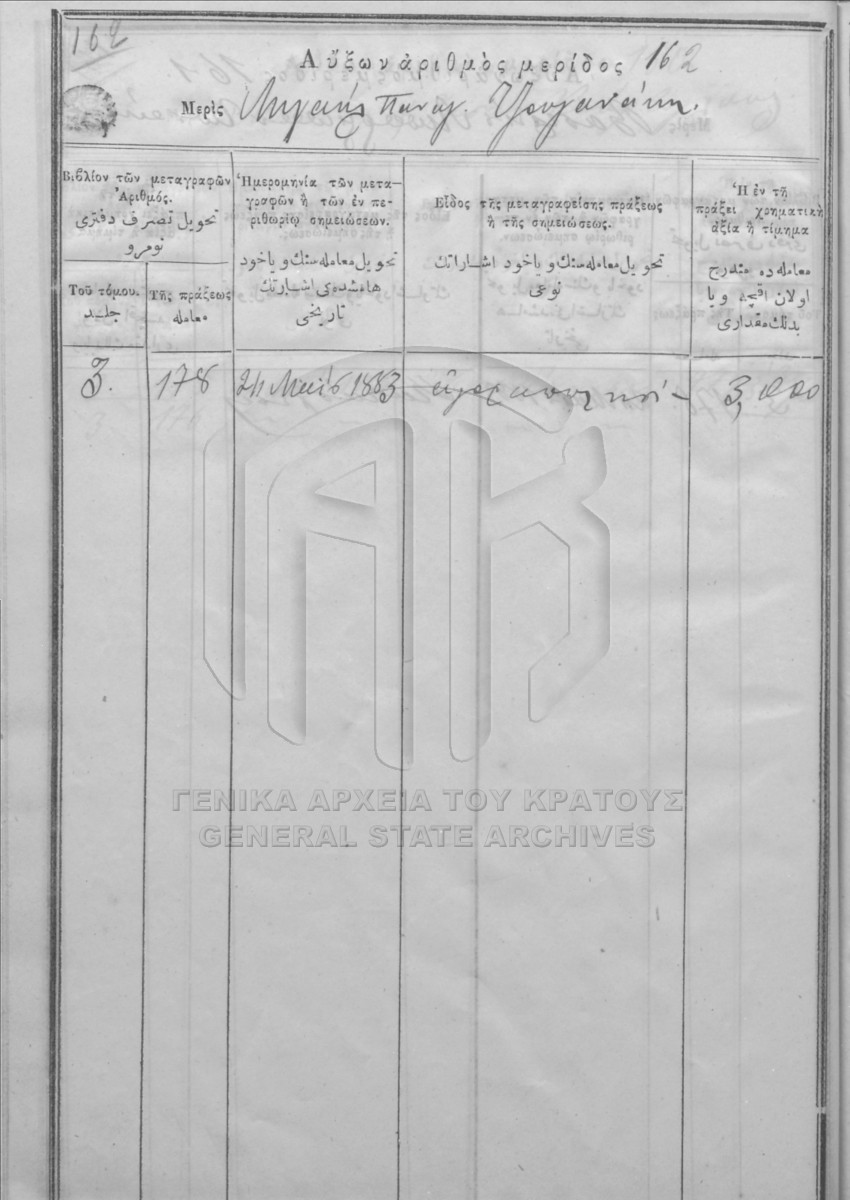 162
Αὔξων ἀριθμὸς μερίδος 162
Μερὶς Μιχαὴλ Παναγ.
Βιβλίον τῶν μεταγραφῶν
Ἀριθμός.
تحويل تصرف دفترى
نومرو
Τοῦ τόμου.
جلد
Τῆς πράξεως
معامله
Ἡμερομηνία τῶν μετα—
γραφῶν ἢ τῶν ἐν πε-
ριθωρίῳ σημειώσεων.
تحويل معامله سنك و ياخود
هامشده‌كى اشاراتك
تاريخى
Εἶδος τῆς μεταγραφείσης πράξεως
ἢ τῆς σημειώσεως.
تحويل معامله سنك و ياخود اشاراتك
نوعى
Ἡ ἐν τῇ
πράξει χρηματικὴ
ἀξία ἢ τίμημα
معامله ده مندرج
اولان اقچه و يا
بدلك مقدارى
3. 178 24 1883 3,000
ΓΕΝΙΚΑ ΑΡΧΕΙΑ ΤΟΥ ΚΡΑΤΟΥΣ
GENERAL STATE ARCHIVES